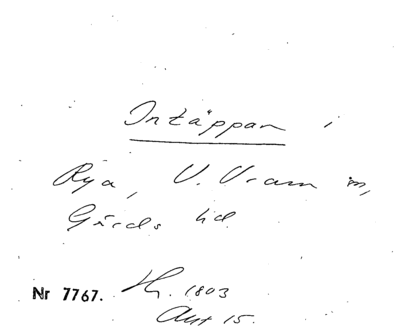 Intäppan i
Rya, V. Vram sn,
Gärds hd
Nr 7767. Th. 1803
Akt 15.